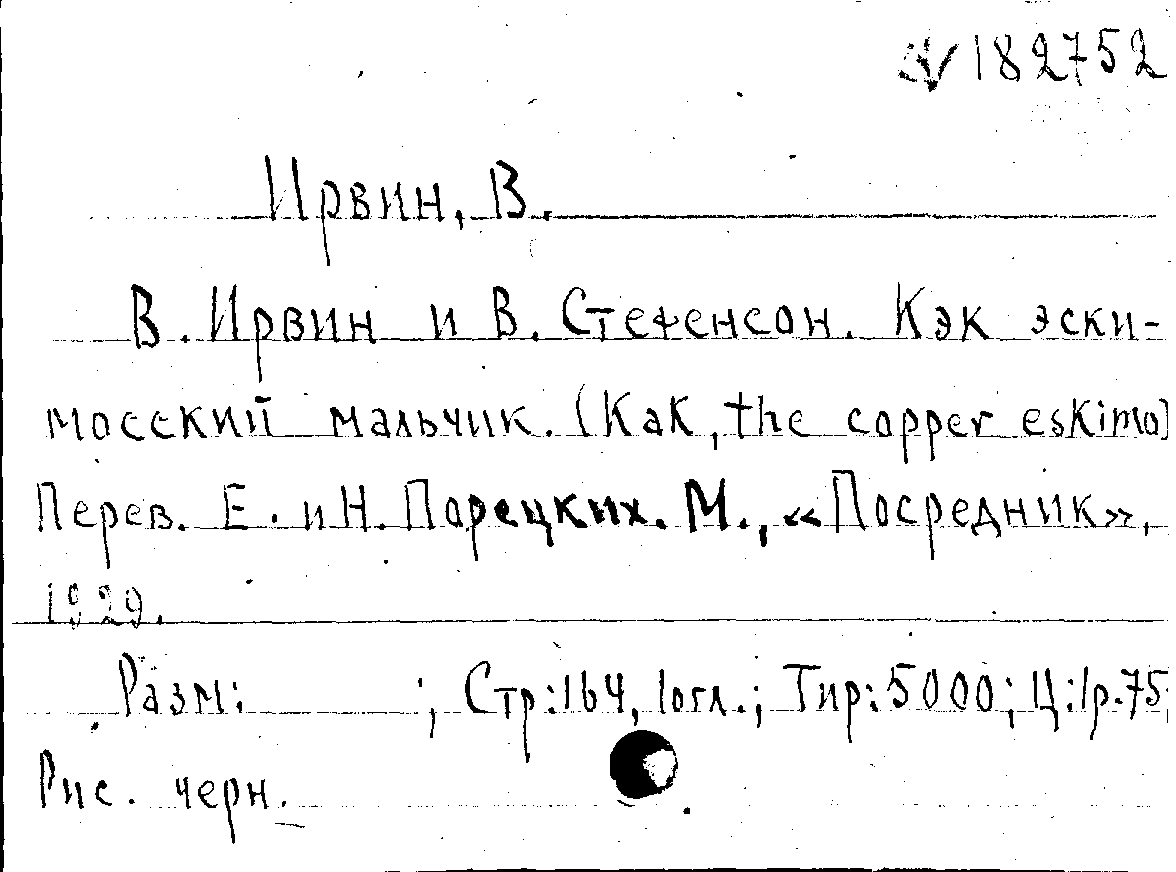 182752
Ирвин, В.
В. Ирвин и В. Стефенсон. Кэк эски-
мосский мальчик. (Kak, the copper eskimo)
Перев. Е. и Н. Парецких. М., «Посредник»,
1929.
Разм: ; Стр: 164, 1 огл.; Тир: 5000; Ц: 1 р. 75,
Рис. черн.